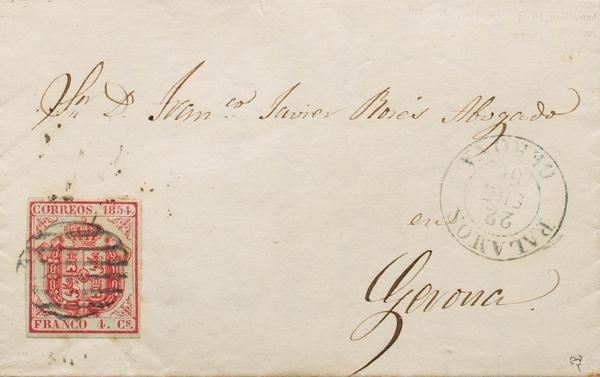 Sr. D. Franco. Javier Rosés Abogado
en
Gerona.
CORREOS. 1854.
FRANCO 4. Cs.
PALAMOS
22
GERONA